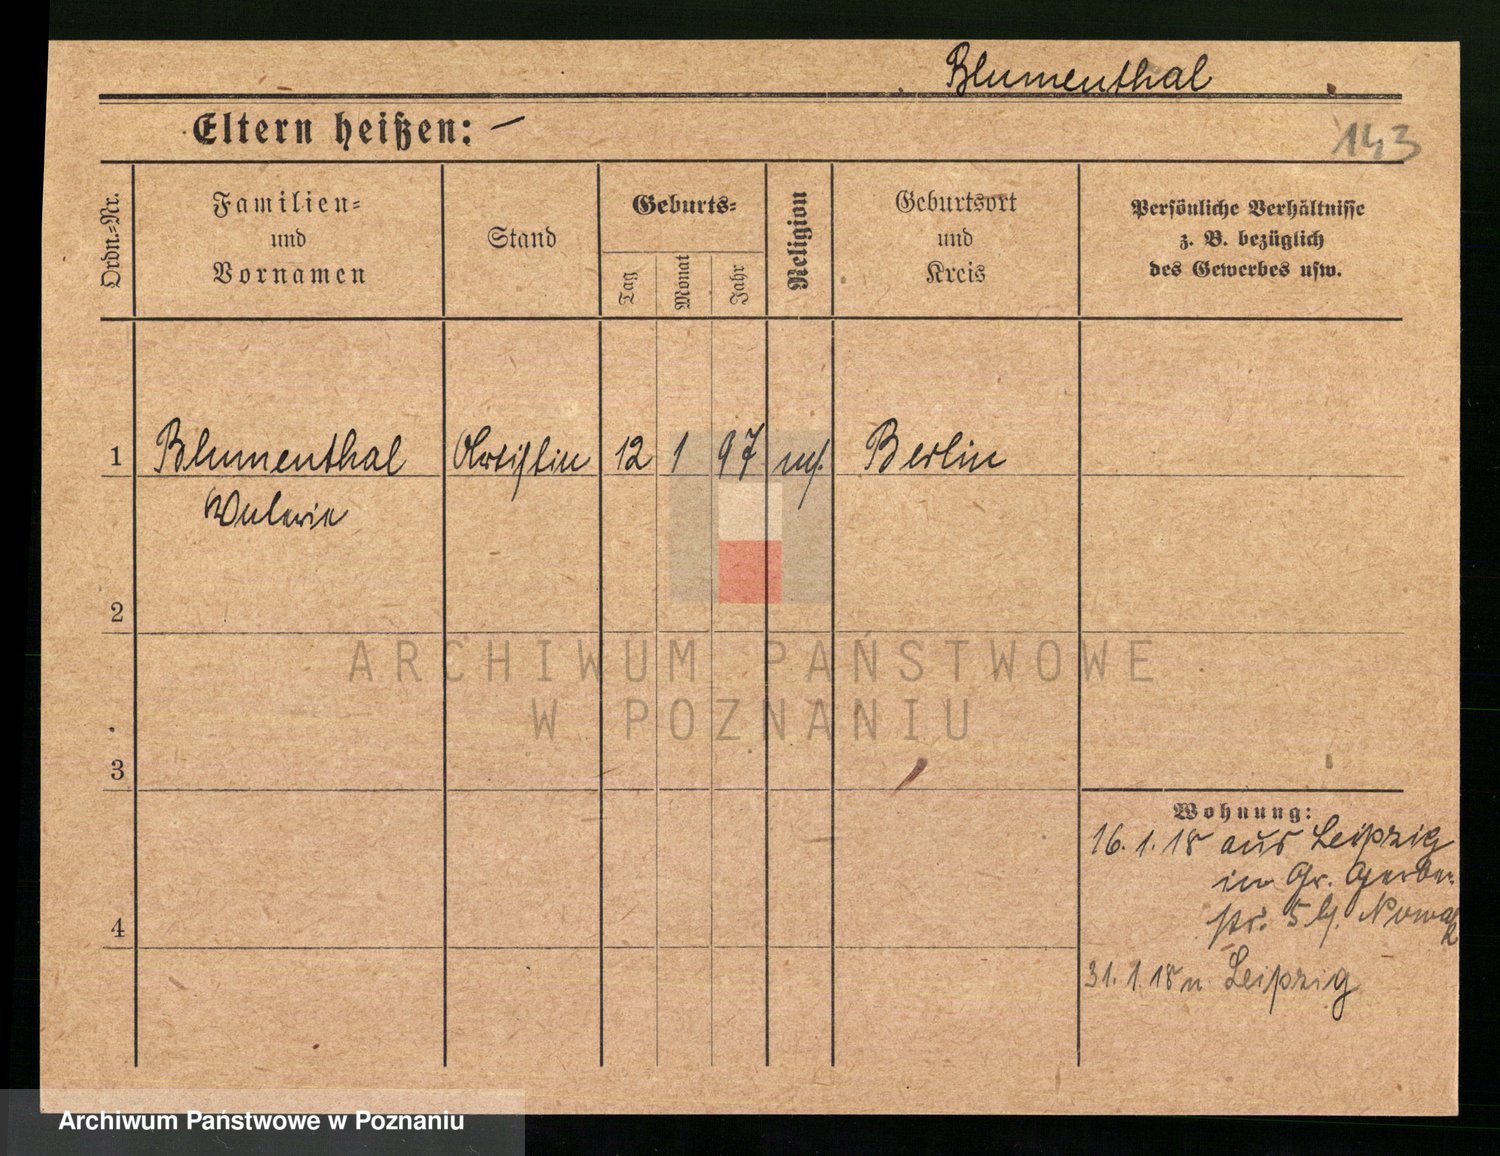 Blumenthal
Eltern heißen: —
143
Ordn.-Nr.
Familien-
und
Vornamen
Stand
Geburts-
Tag
Monat
Jahr
Religion
Geburtsort
und
Kreis
Persönliche Verhältnisse
z. B. bezüglich
des Gewerbes usw.
1 Blumenthal Artistin 12 1 97 Berlin
Valerie
2
ARCHIWUM PAŃSTWOWE
W POZNANIU
3
Wohnung:
16. 1. 18 aus Leipzig
in Gr. Gerber-
str. 5 bf. Nowak
4
31. 1. 18 n Leipzig
Archiwum Państwowe w Poznaniu